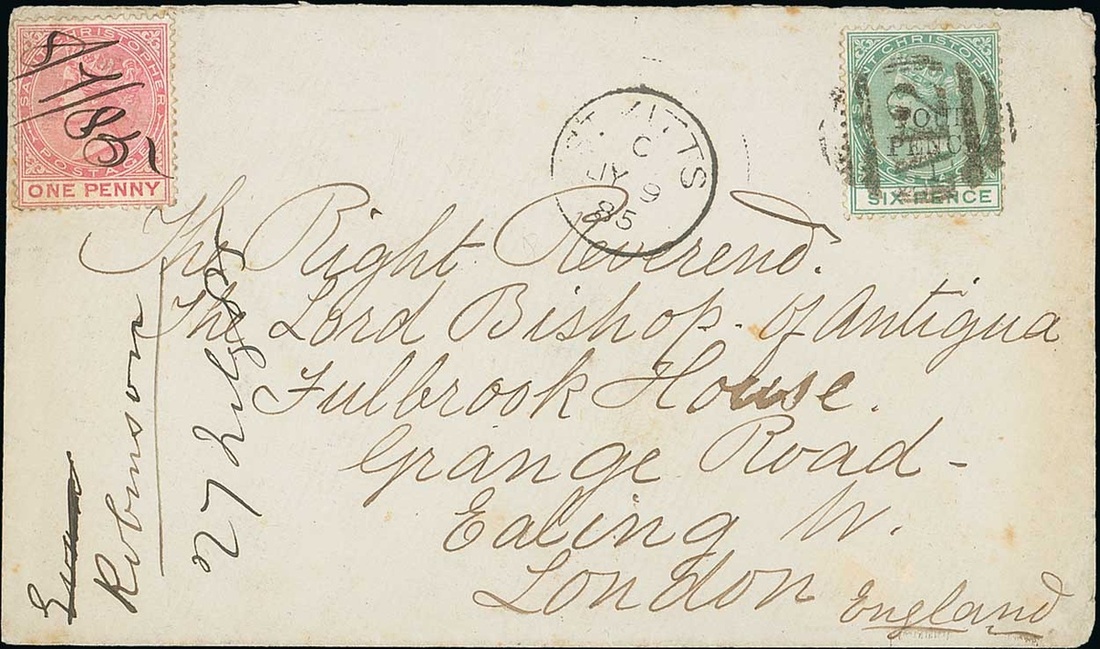 SAINT CHRISTOPHER
POSTAGE
ONE PENNY
8/7/85
ST. KITTS
C
JY 9
85
SAINT CHRISTOPHER
A12
FOUR
PENCE
SIX PENCE
The Right Reverend.
The Lord Bishop of Antigua
Fulbrook House.
Grange Road -
Ealing W.
London
England
Robinson
27 July/85